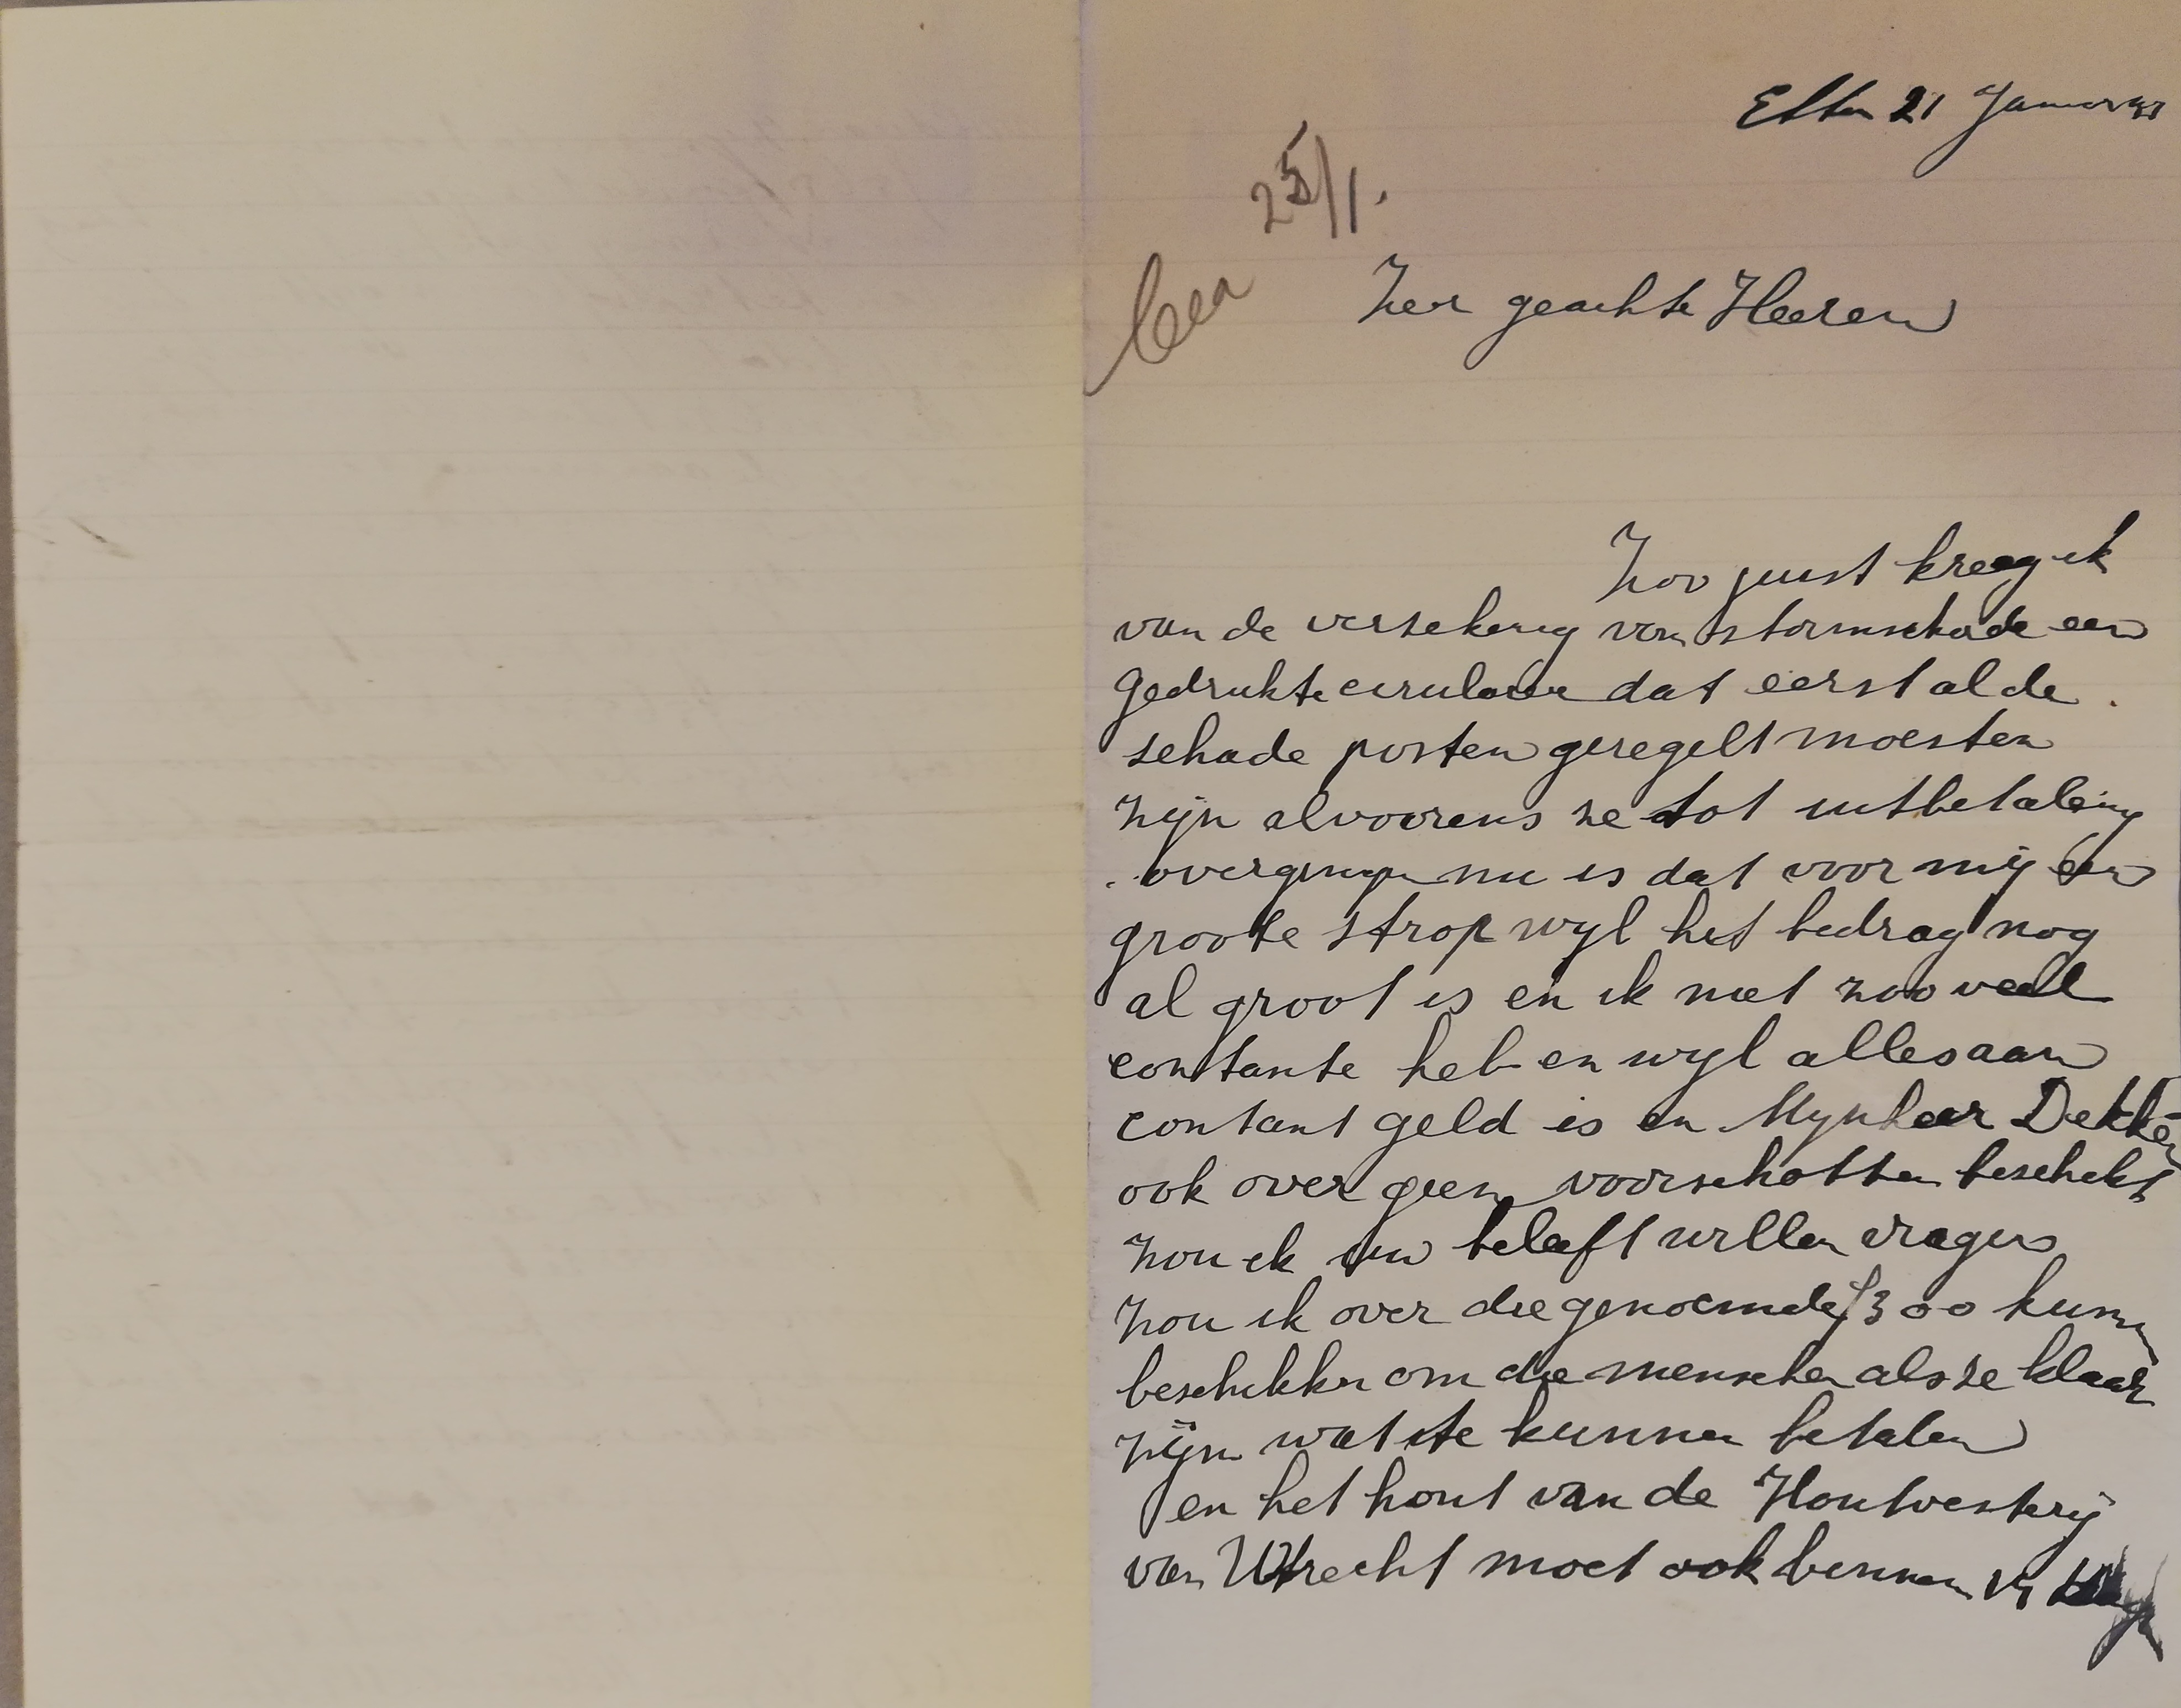 Elten 21 Januari
25/1.
Zeer geachte Heeren
Zoo juist kreeg ik
van de versekering van stormschade een
gedrukte cirulaire dat eerst al de
schade posten geregelt moesten
zijn alvoorens ze tot uitbetaling
overgingen nu is dat voor mij een
groote strop wyl het bedrag nog
al groot is en ik niet zoo veel
contante heb en wyl alles aan
contant geld is en Mynheer Dekker
ook over geen voorschotten beschikt
zou ik uw beleeft willen vragen
zou ik over die genoemde f 300 kunnen
beschikken om die menschen als ze klaar
zijn wat te kunnen betalen
en het hout van de Houtvesterij
van Utrecht moet ook binnen 14